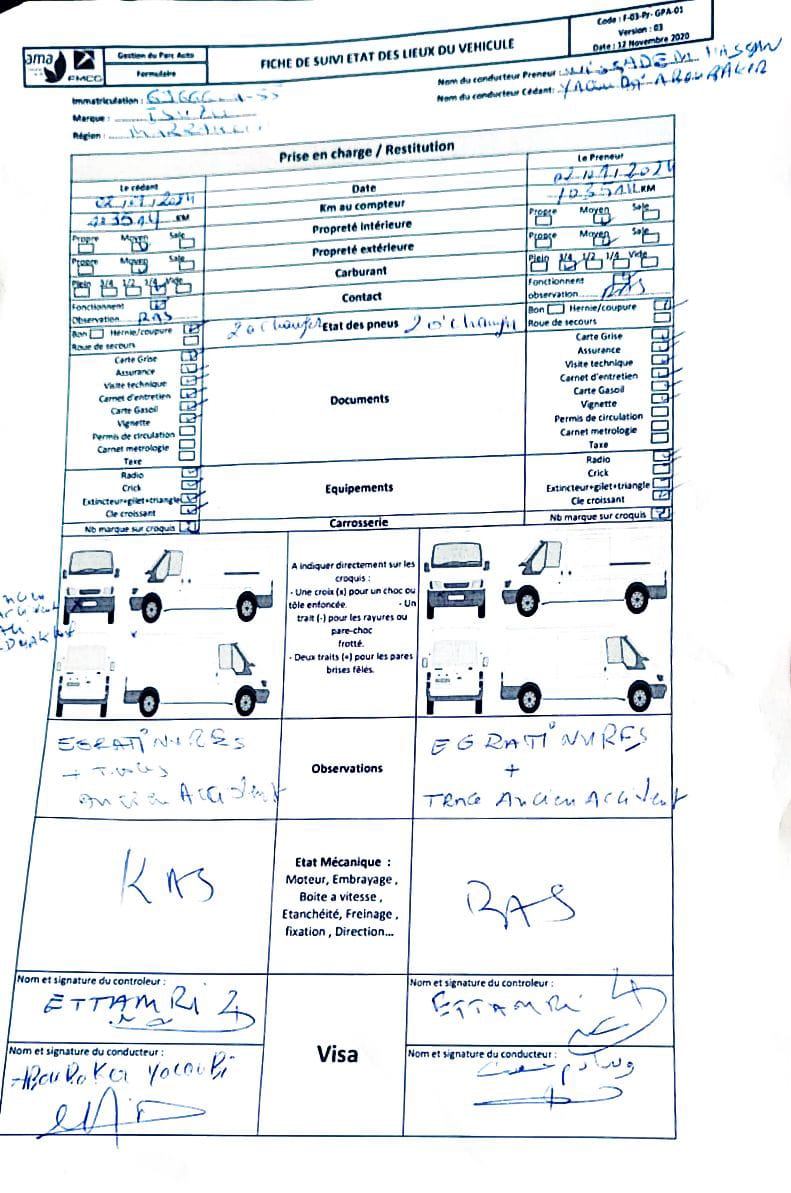 ama
FMCG
Gestion du Parc Auto
Formulaire
FICHE DE SUIVI ETAT DES LIEUX DU VEHICULE
Code : F-03-Pr- GPA-01
Version : 03
Date : 12 Novembre 2020
Immatriculation :
Marque : ISUZU
Région :
Nom du conducteur Preneur :
Nom du conducteur Cédant :
Prise en charge / Restitution
Le cédant
Date
Le Preneur
Km au compteur
KM
KM
Propreté intérieure
Propre Moyen Sale
Propre Moyen Sale
Propreté extérieure
Propre Moyen Sale
Propre Moyen Sale
Carburant
Plein 3/4 1/2 1/4 Vide
Plein 3/4 1/2 1/4 Vide
Contact
Fonctionnent
Observation RAS
Fonctionnent
observation RAS
Etat des pneus
Bon Hernie/coupure
Roue de secours
Bon Hernie/coupure
Roue de secours
Documents
Carte Grise
Assurance
Visite technique
Carnet d'entretien
Carte Gasoil
Vignette
Permis de circulation
Carnet metrologie
Taxe
Carte Grise
Assurance
Visite technique
Carnet d'entretien
Carte Gasoil
Vignette
Permis de circulation
Carnet metrologie
Taxe
Equipements
Radio
Crick
Extincteur+gilet+triangle
Cle croissant
Radio
Crick
Extincteur+gilet+triangle
Cle croissant
Carrosserie
Nb marque sur croquis
Nb marque sur croquis
A indiquer directement sur les
croquis :
- Une croix (x) pour un choc ou
tôle enfoncée. - Un
trait (-) pour les rayures ou
pare-choc
frotté.
- Deux traits (=) pour les pares
brises fêlés.
Observations
EGRATINURES
+
Ancien Accident
EGRATINURES
+
TRACE Ancien Accident
Etat Mécanique :
Moteur, Embrayage ,
Boite a vitesse ,
Etanchéité, Freinage ,
fixation , Direction...
RAS
RAS
Visa
Nom et signature du controleur :
ETTAMRI
Nom et signature du controleur :
ETTAMRI
Nom et signature du conducteur :
ABOUBAKER YACOUBI
Nom et signature du conducteur :